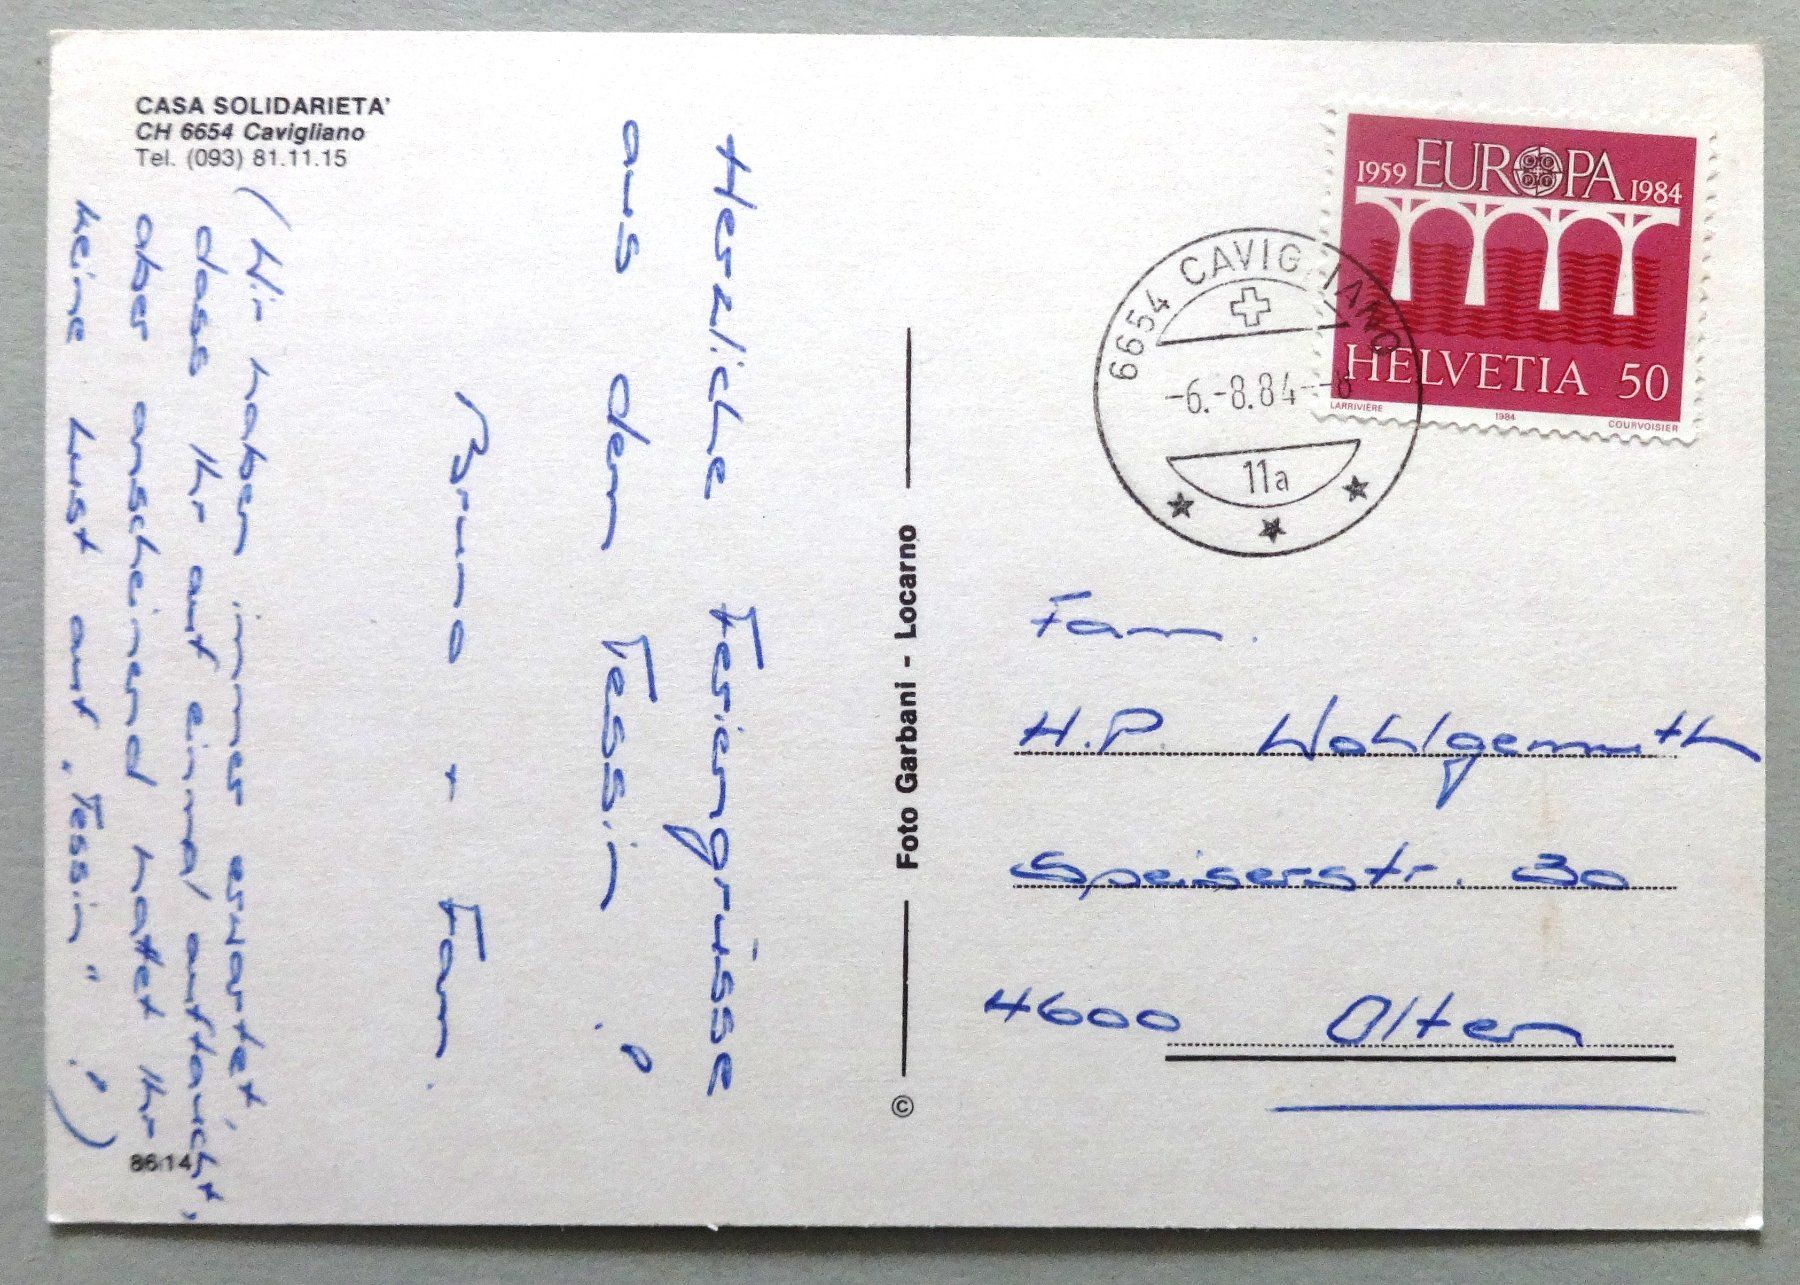 CASA SOLIDARIETA'
CH 6654 Cavigliano
Tel. (093) 81.11.15
Herzliche Feriengrüsse
aus dem Tessin.
Bruno + Fam.
(Wir haben immer erwartet,
dass Ihr auf einmal auftaucht,
aber anscheinend hattet Ihr
keine Lust auf "Tessin".)
86.14
Foto Garbani - Locarno
©
1959 EUROPA 1984
HELVETIA 50
LARRIVIÈRE 1984 COURVOISIER
6654 CAVIGLIANO
-6.-8.84--8
11a
Fam.
H.P. Wohlgemuth
Speiserstr. 30
4600 Olten